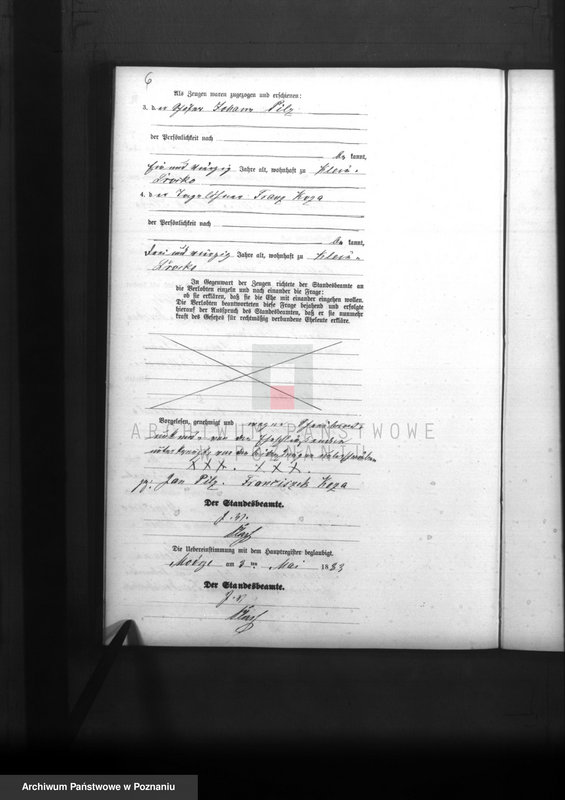 6
Als Zeugen waren zugezogen und erschienen:
3. der Johann Pilz
der Persönlichkeit nach
kannt,
Ein und vierzig Jahre alt, wohnhaft zu Klein-
4. der Tagelöhner Franz Koza
der Persönlichkeit nach
kannt,
drei und vierzig Jahre alt, wohnhaft zu Klein-
In Gegenwart der Zeugen richtete der Standesbeamte an
die Verlobten einzeln und nach einander die Frage:
ob sie erklären, daß sie die Ehe mit einander eingehen wollen.
Die Verlobten beantworteten diese Frage bejahend und erfolgte
hierauf der Ausspruch des Standesbeamten, daß er sie nunmehr
kraft des Gesetzes für rechtmäßig verbundene Eheleute erkläre.
Vorgelesen, genehmigt und wegen
ARCHIWUM PAŃSTWOWE
W POZNANIU
von den
von den beiden Zeugen unterschrieben
XXX. XXX.
gez. Jan Pilz. Franciszek Koza
Der Standesbeamte.
J. V.
Die Uebereinstimmung mit dem Hauptregister beglaubigt.
am 3ten Mai 1883
Der Standesbeamte.
J. V.
Archiwum Państwowe w Poznaniu